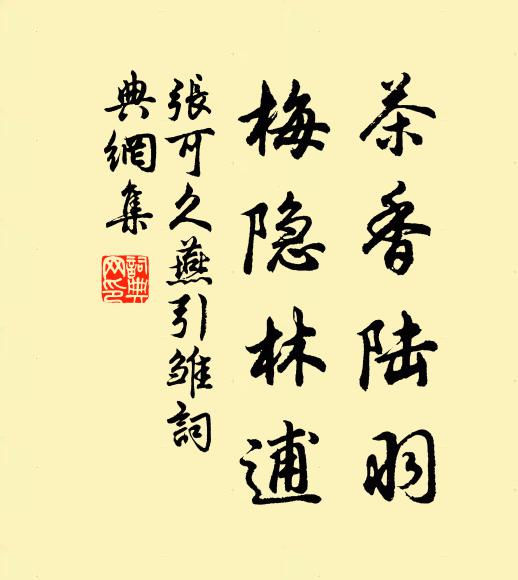 茶香陆羽
梅隐林逋
張可久燕引雏詞
典網集
詞典网印